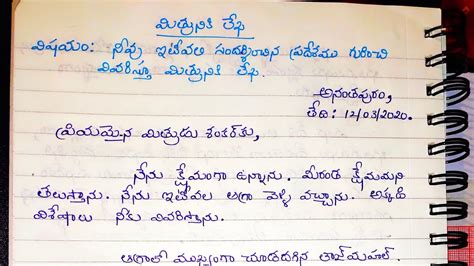 మిత్రునికి లేఖ
విషయం: నీవు ఇటీవల సందర్శించిన ప్రదేశము గురించి
వివరిస్తూ మిత్రునికి లేఖ.
అనంతపురం,
తేది: 12/03/2020.
ప్రియమైన మిత్రుడు శంకర్‌కు,
నేను క్షేమంగా ఉన్నాను. మీరంత క్షేమమని
తలుస్తాను. నేను ఇటీవల ఆగ్రా వెళ్ళి వచ్చాను. అక్కడి
విశేషాలు నీకు వివరిస్తాను.
ఆగ్రాలో ముఖ్యంగా చూడదగిన తాజ్‌మహల్.